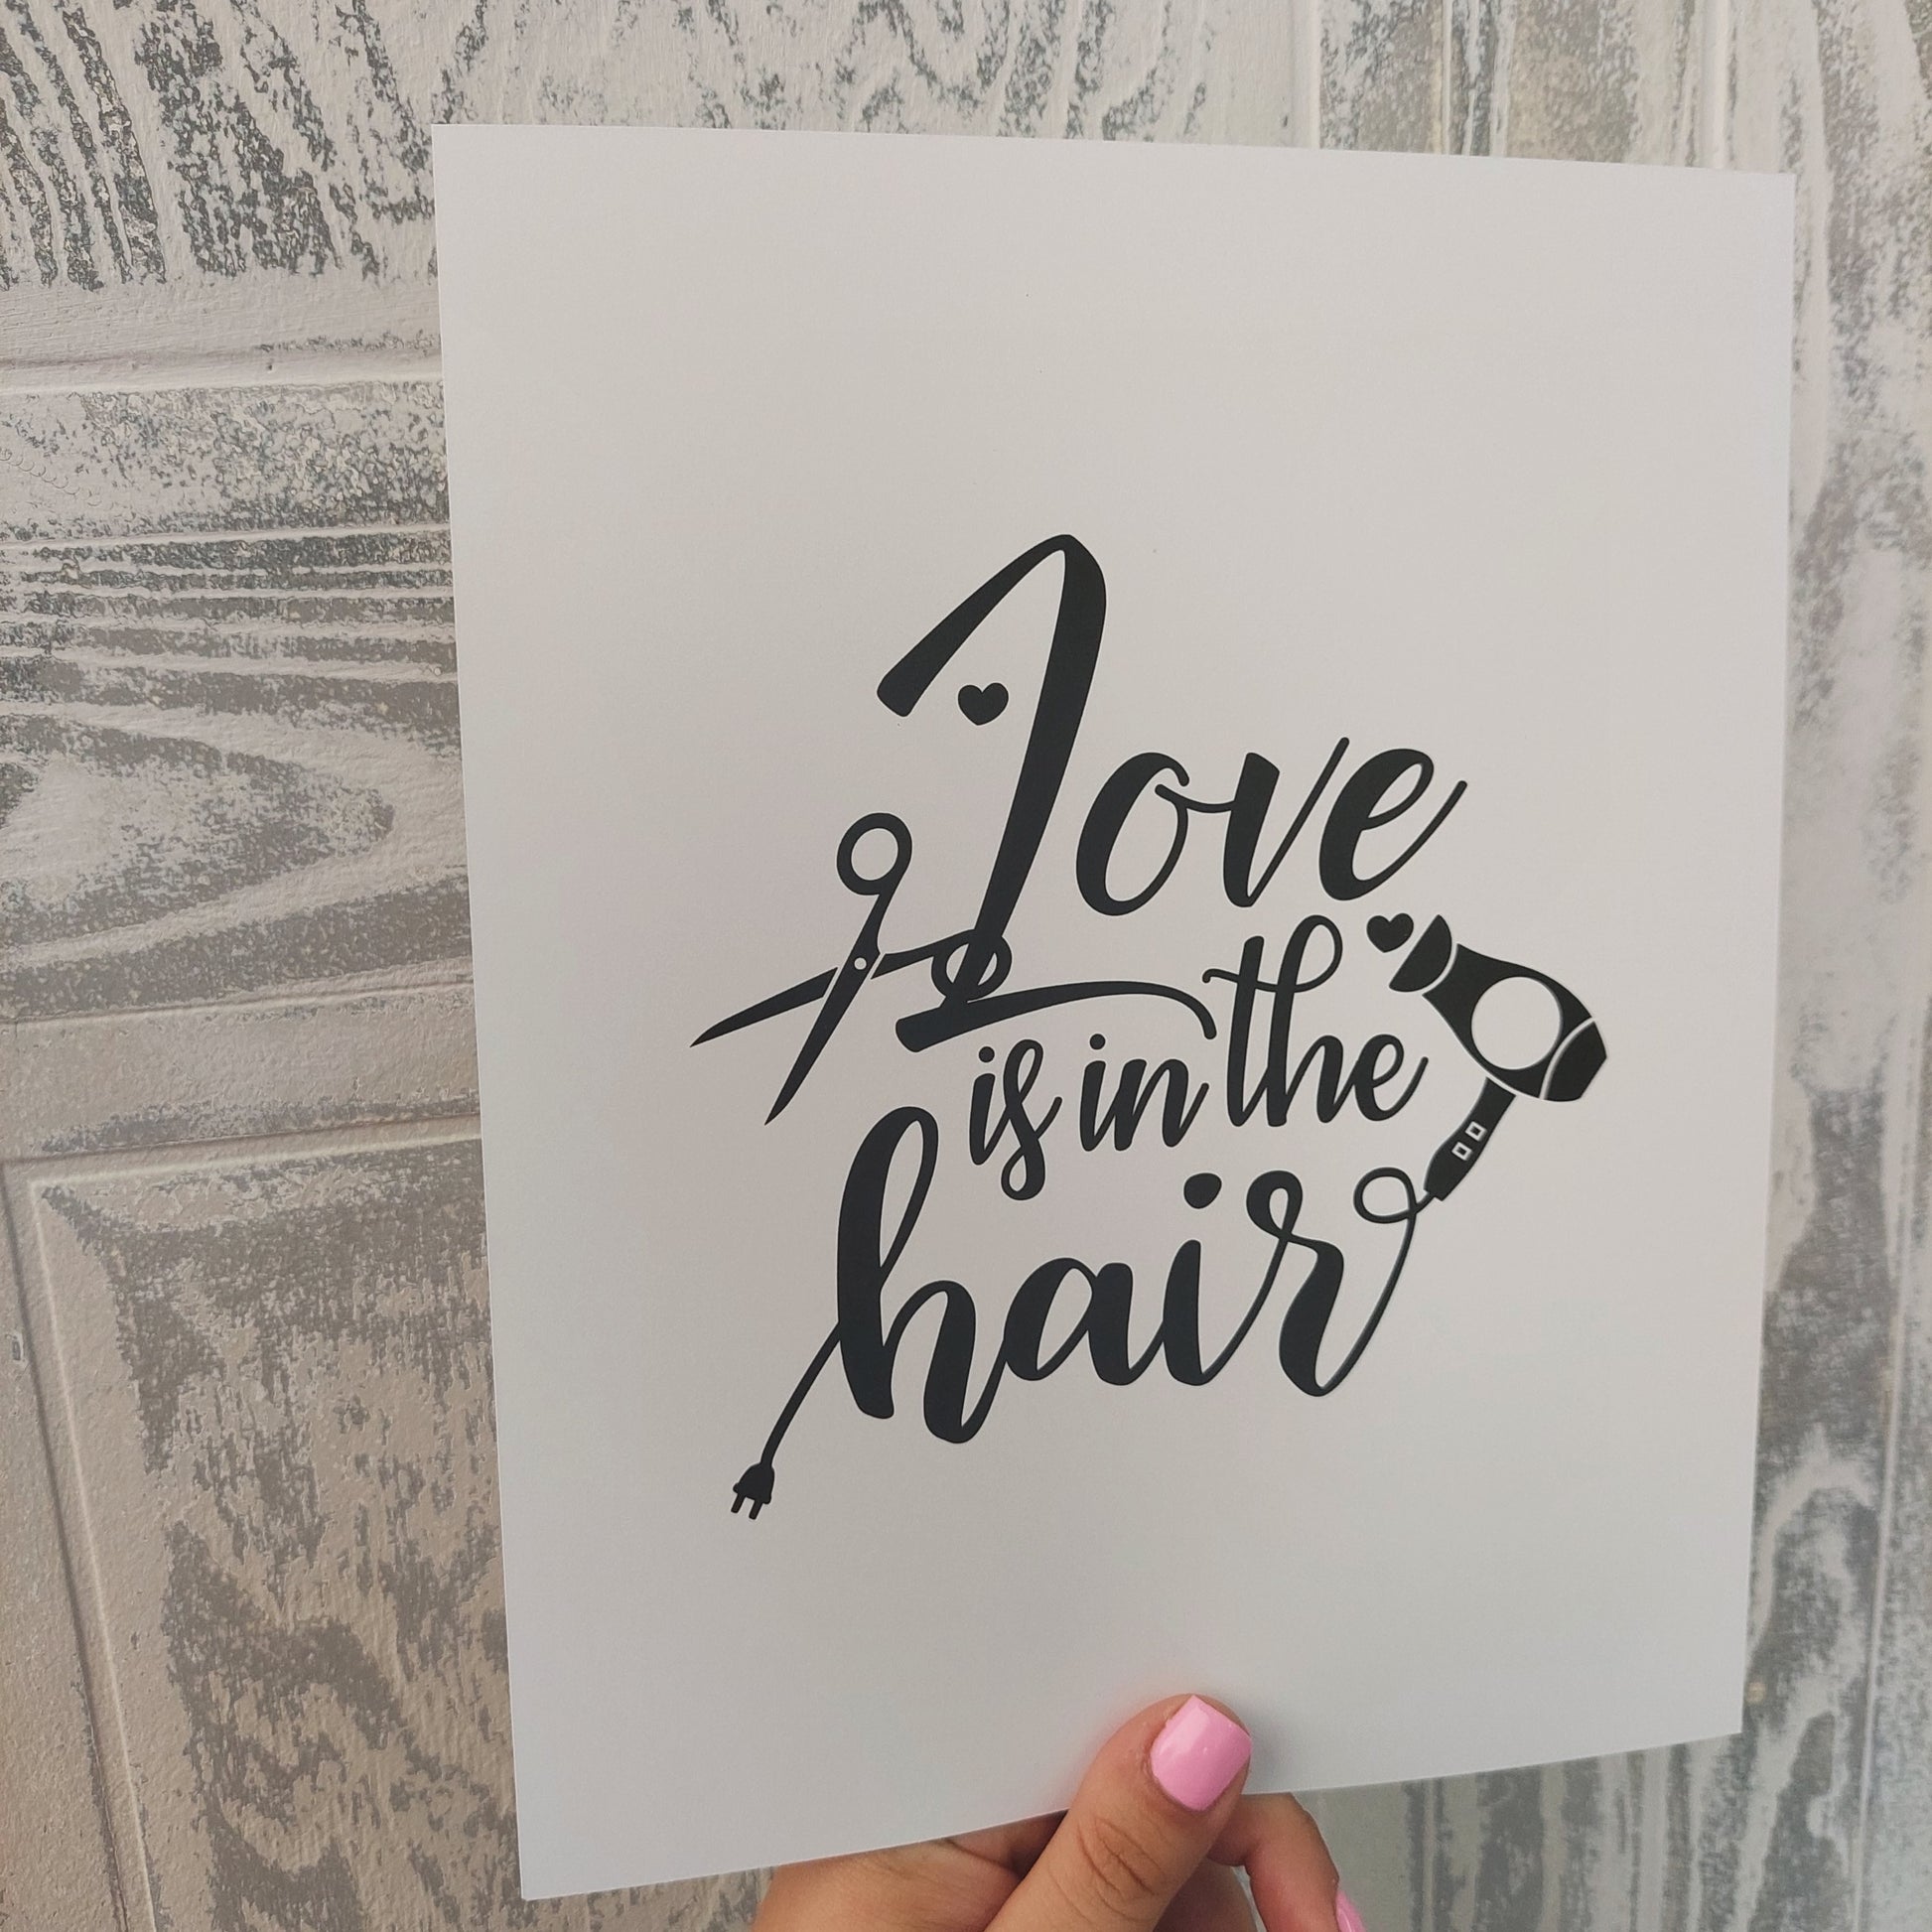 Love
is in the
hair